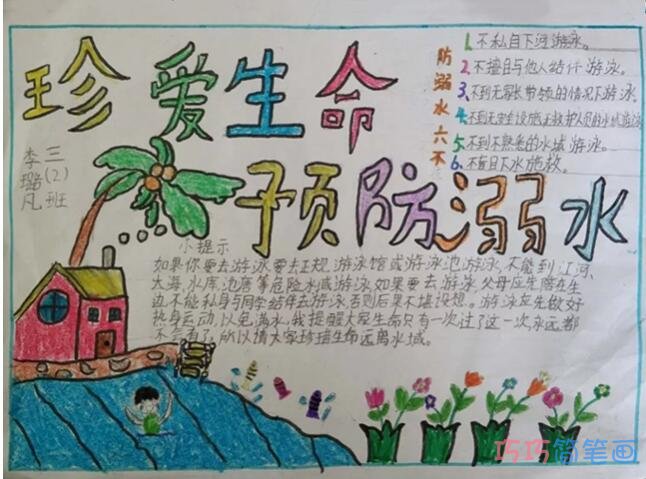 珍爱生命
预防溺水
三(2)班
李璐凡
防溺水六不
1.不私自下河游泳。
2.不擅自与他人结伴游泳。
3.不到无家长带领的情况下游泳
4.不到无安全设施无救护人员的水域游泳
5.不到不熟悉的水域游泳。
6.不盲目下水施救。
小提示
如果你要去游泳要去正规游泳馆或游泳池游泳,不能到江河、
大海,水库,池塘等危险水域游泳如果要去游泳父母应先陪在
边不能私身与同学结伴去游泳,否则后果不堪设想。游泳应先做好
热身运动,以免满水,我提醒大家生命只有一次过了这一次,永远都
不会有了,所以请大家珍惜生命远离水域。
巧巧简笔画